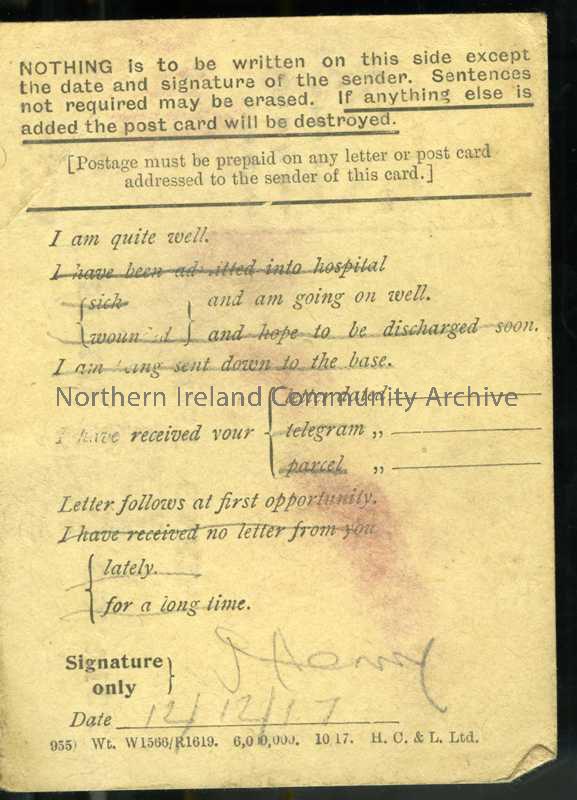 NOTHING is to be written on this side except
the date and signature of the sender. Sentences
not required may be erased. If anything else is
added the post card will be destroyed.
[Postage must be prepaid on any letter or post card
addressed to the sender of this card.]
I am quite well.
I have been admitted into hospital
{ sick } and am going on well.
{ wounded } and hope to be discharged soon.
I am being sent down to the base.
Northern Ireland Community Archive
I have received your { letter dated
telegram „
parcel „
Letter follows at first opportunity.
I have received no letter from you
{ lately.
for a long time.
Signature only }
Date 12/12/17
955) Wt. W1566/R1619. 6,000,000. 10/17. H. C. & L. Ltd.